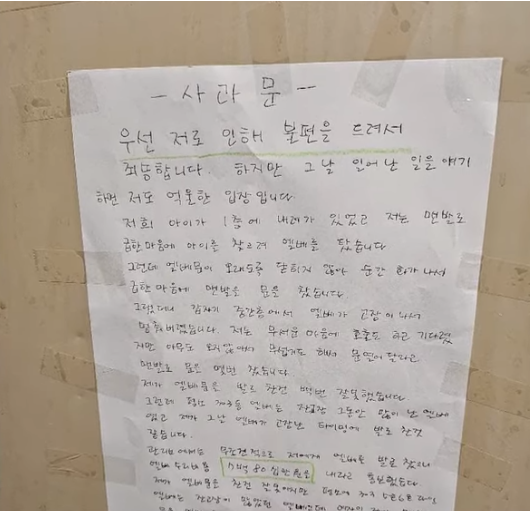 - 사 과 문 -
우선 저로 인해 불편을 드려서
죄송합니다. 하지만 그 날 일어난 일을 얘기
하면 저도 억울한 입장 입니다
저희 아이가 1층에 내려가 있었고 저는 맨발로
급한 마음에 아이를 찾으려 엘베를 탔습니다
그런데 엘베문이 오래동안 닫히지 않아 순간 화가 나서
급한 마음에 맨발로 문을 찼습니다
그랬더니 갑자기 중간층에서 엘베가 고장이 나서
멈춰버렸습니다. 저는 무서운 마음에 호출도 하고 기다렸
지만 아무도 오지 않아서 무섭기도 해서 문열어 달라고
맨발로 문을 몇번 찼습니다.
제가 엘베문을 발로 찬건 백번 잘못했습니다.
그런데 평소 엘베는 잔고장 그동안 많이 난 엘베
였고 제가 그날 엘베가 고장난 타이밍에 발로 찬것
같습니다.
관리실에서는 무조건적으로 저에게 엘베를 발로 찼으니
엘베 수리비를 7백 80 십만원을 내라고 통보했습니다
제가 엘베문을 찬건 잘못이지만 평소에
엘베는 잔고장이 많았던 엘베인데